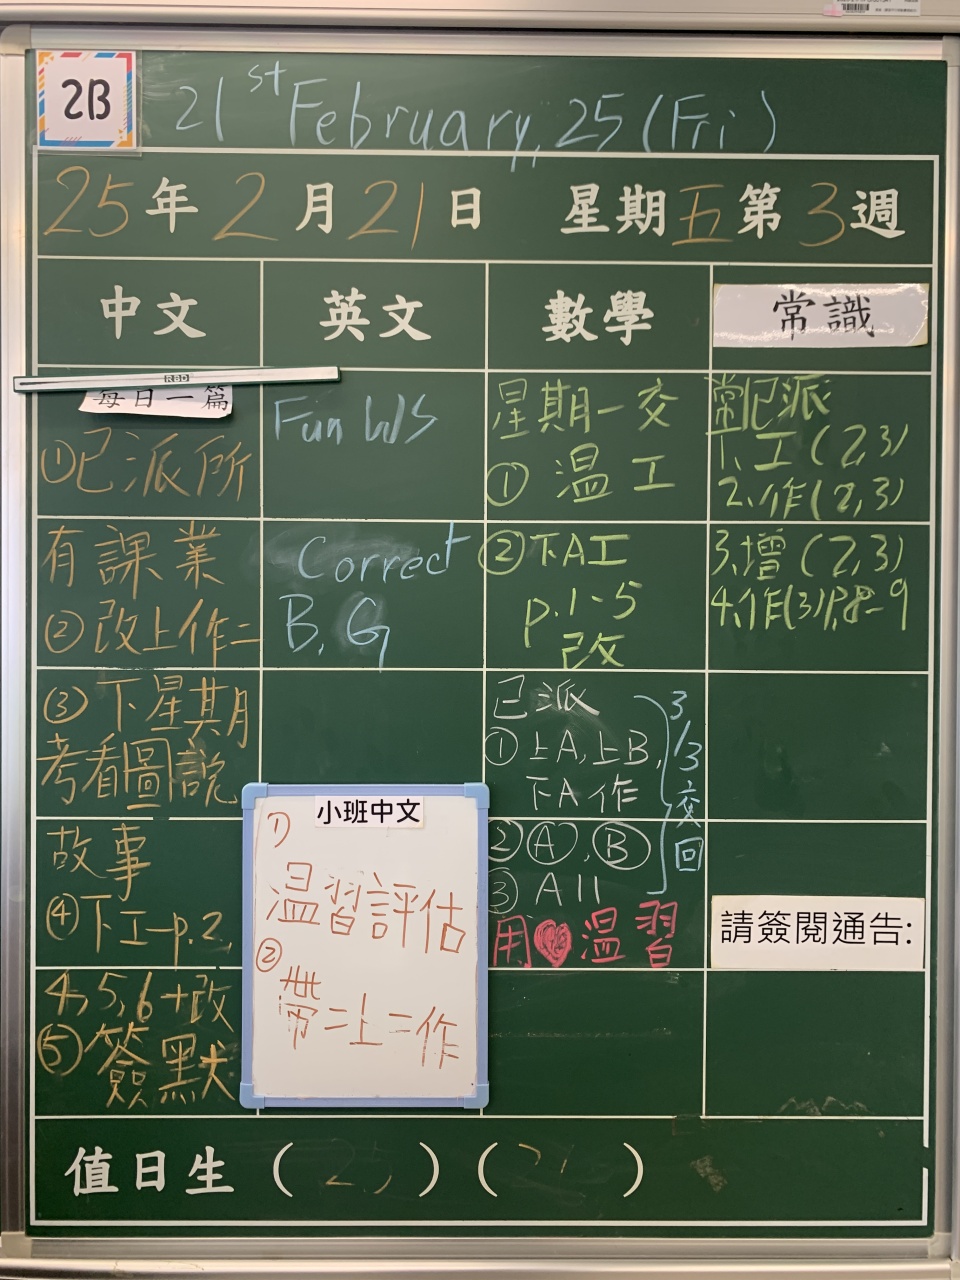 2B
21st February, 25 (Fri)
25年2月21日 星期五第3週
中文
每日一篇
①已派所
有課業
②改上作二
③下星期
考看圖說
故事
④下工一p.2,
4,5,6+改
⑤簽默
英文
Fun WS
Correct
B, G
小班中文
1)
溫習評估
②
帶二上二作
數學
星期一交
①溫工
②下A工
p.1-5
改
已派
①上A,上B,
下A作
②Ⓐ,Ⓑ
③All
3/3交回
用♥溫習
常識
常已派
1.工(2,3)
2.作(2,3)
3.增(2,3)
4.作(3)p.8-9
請簽閱通告:
值日生( )( )